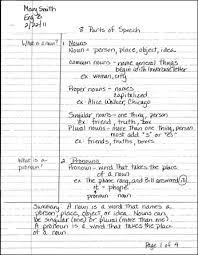 Mary Smith
Eng 8
2/22/11
8 Parts of Speech
What is a noun?
1. Nouns
Noun = person, place, object, idea
common nouns - name general things
begin with lowercase letter
ex woman, city
Proper nouns - names
capitalized
ex Alice Walker, Chicago
Singular nouns - one thing, person
ex friend, truth, box
Plural nouns - more than one thing, person
most add "s" or "es"
ex friends, truths, boxes
What is a pronoun?
2. Pronouns
Pronoun - word that takes the place
of a noun
ex The phone rang, and Bill answered it
it = phone
pronoun = noun
Summary: A noun is a word that names a
person, place, object, or idea. Nouns can
be singular (one) or plural (more than one).
A pronoun is a word that takes the place
of a noun
Page 1 of 4